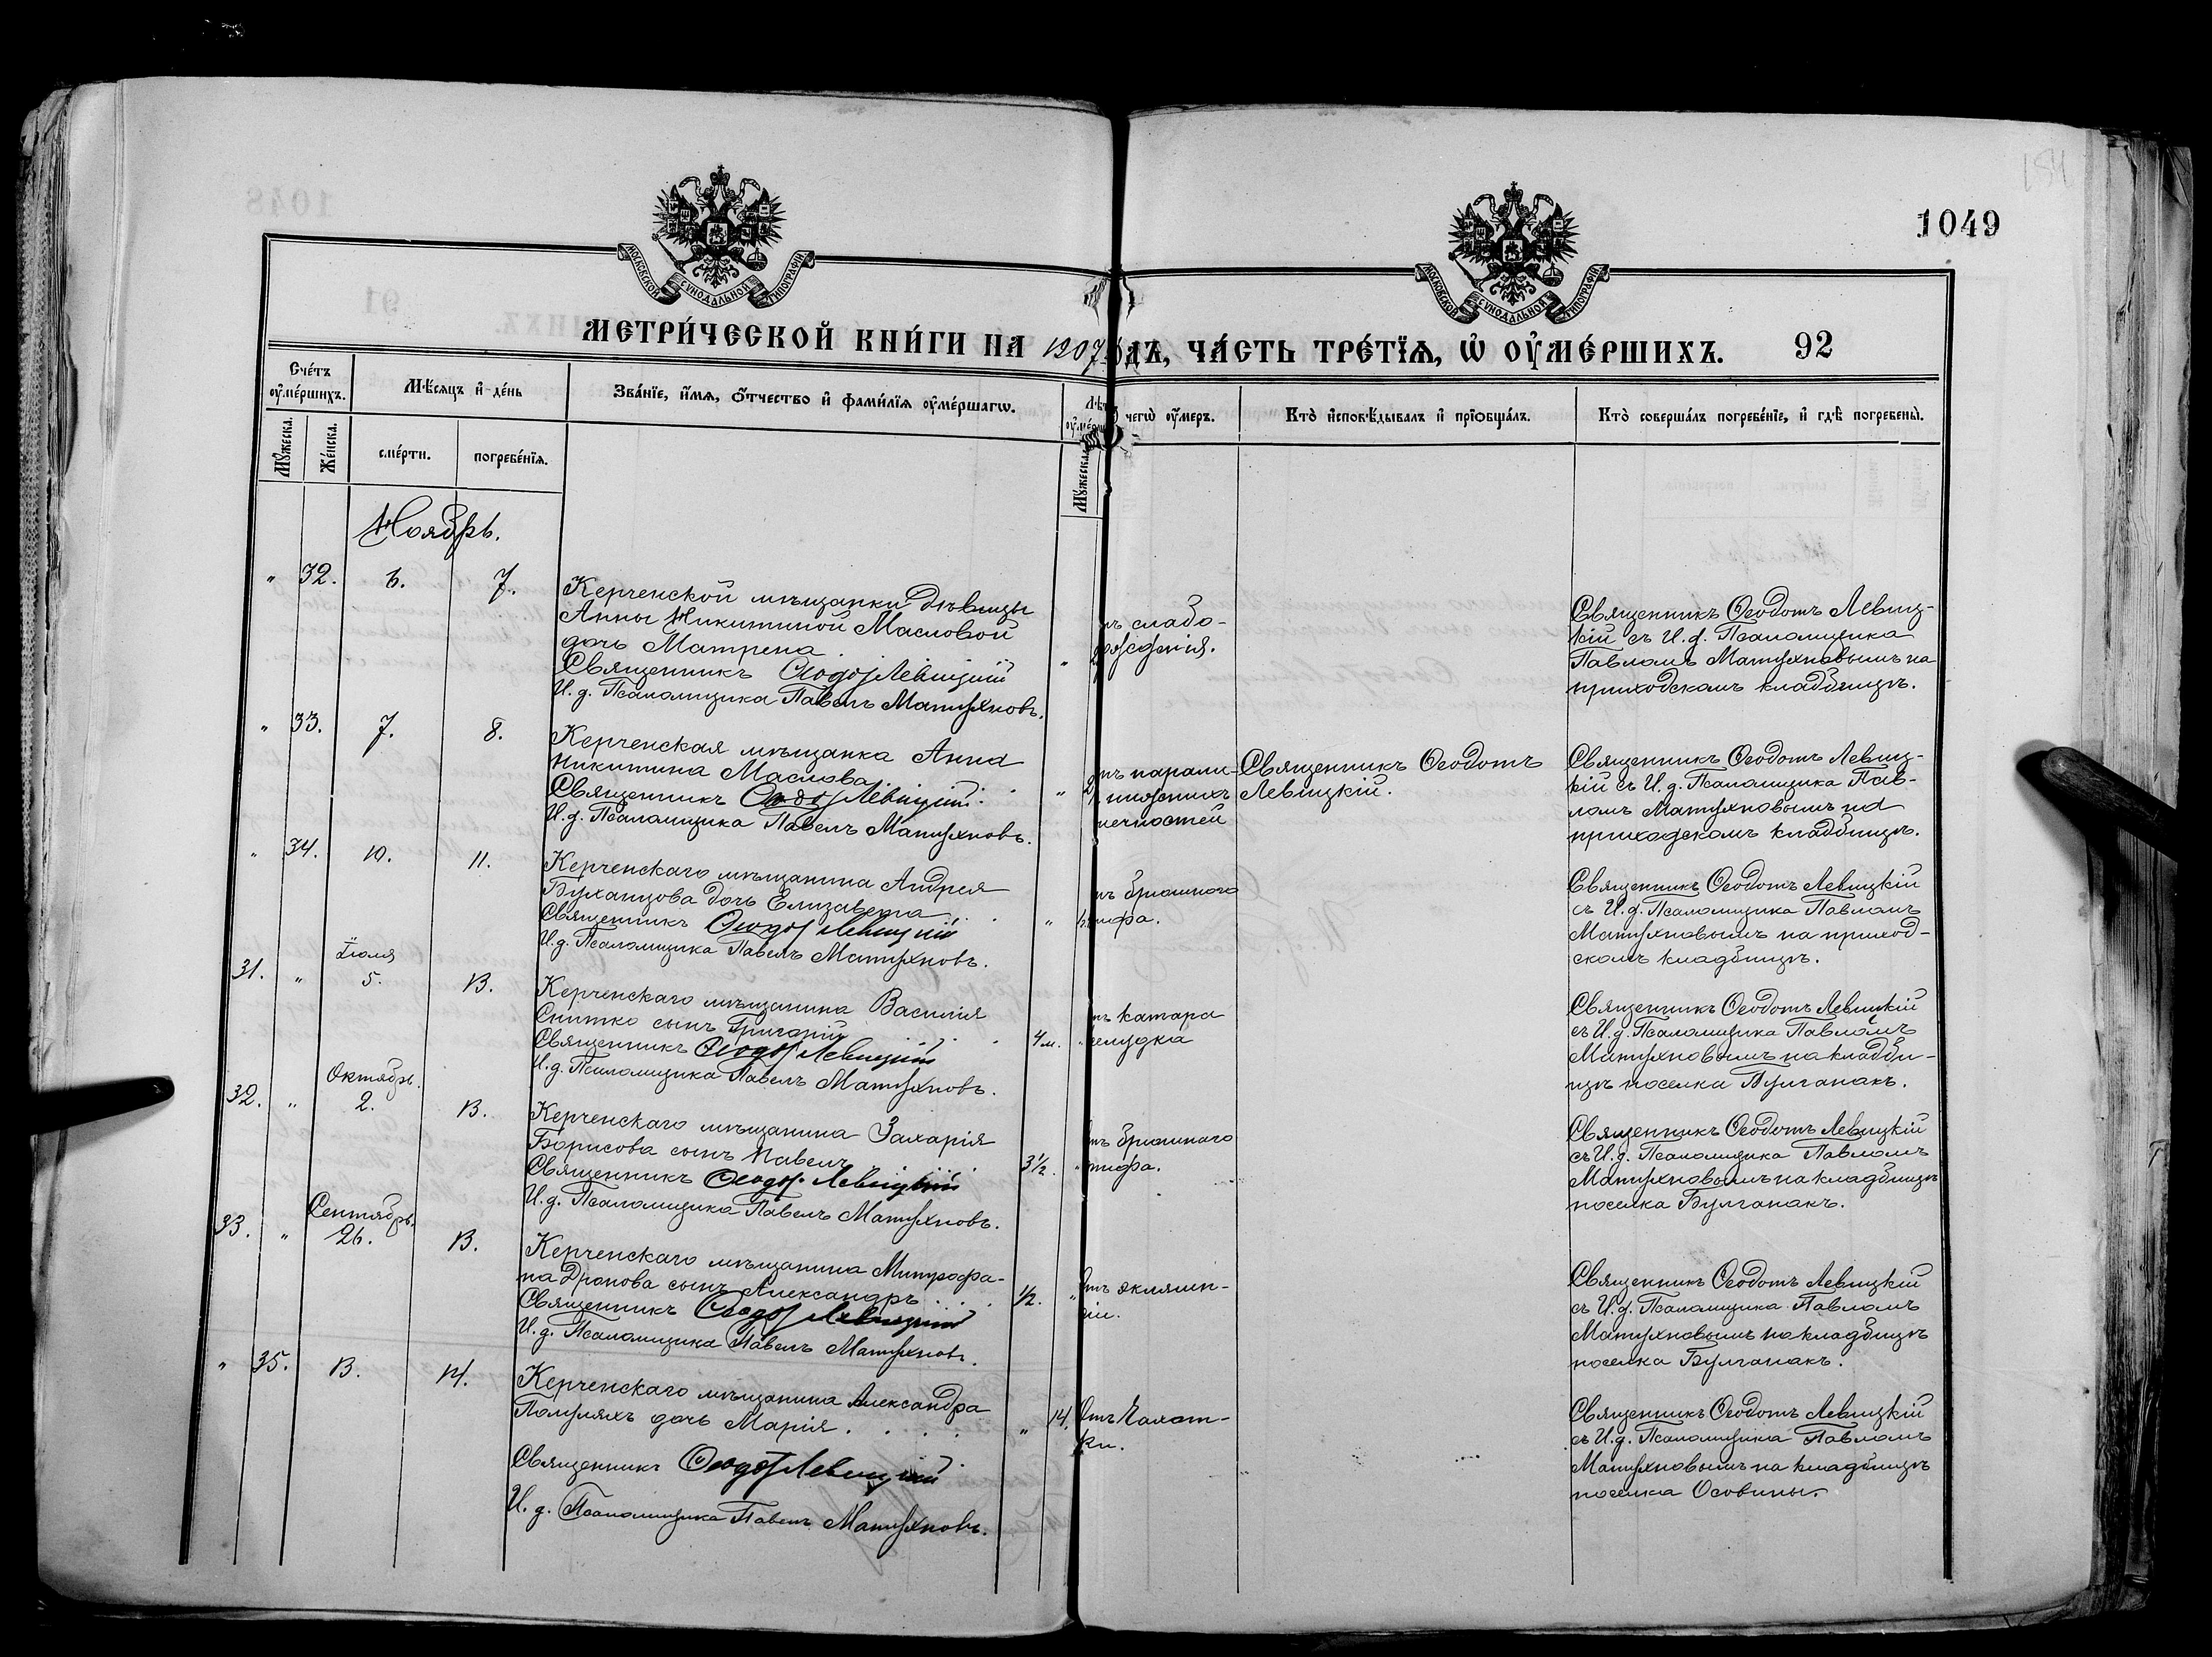 1049
МОСКОВСКОЙ СѴНОДАЛЬНОЙ ТИПОГРАФІИ
МОСКОВСКОЙ СѴНОДАЛЬНОЙ ТИПОГРАФІИ
МЕТРИ́ЧЕСКОЙ КНИ́ГИ НА 1907 ДЪ, ЧА́СТЬ ТРЕ́ТІѦ, Ѡ҆ ОУ҆МЕ́РШИХЪ. 92
Сче́тъ оу҆ме́ршихъ.
Мꙋ́жеска.
Же́нска.
Мѣ́сѧцъ и҆ де́нь
сме́рти.
погребе́нїѧ.
Зва́нїе, и҆́мѧ, ѻ҆́тчество и҆ фами́лїѧ оу҆ме́ршагѡ.
Мꙋ́жеска
чегѡ̀ оу҆́меръ.
Кто̀ и҆сповѣ́дывалъ и҆ прїѻбща́лъ.
Кто̀ соверша́лъ погребе́нїе, и҆ гдѣ̀ погребены̀.
Ноябрь.
" 32. 6. 7.
Керченской мѣщанки дѣвицы
Анны Никитиной Масловой
дочь Матрена.
Священникъ Ѳеодот Левицкій
И. д. Псаломщика Павелъ Матухновъ.
тъ слабо-
рожденія.
Священникъ Ѳеодотъ Левиц-
кій съ И. д. Псаломщика
Павломъ Матухновымъ на
приходскомъ кладбищѣ.
" 33. 7. 8.
Керченская мѣщанка Анна
Никитина Маслова.
Священникъ Ѳеодот Левицкій.
И. д. Псаломщика Павелъ Матухновъ.
тъ парали-
нечностей
Священникъ Ѳеодотъ
Левицкій.
Священникъ Ѳеодотъ Левиц-
кій съ И. д. Псаломщика Пав-
ломъ Матухновымъ на
приходскомъ кладбищѣ.
" 34. 10. 11.
Керченскаго мѣщанина Андрея
Буханцова дочь Елизавета
Священникъ Ѳеодот Левицкій
И. д. Псаломщика Павелъ Матухновъ.
тъ брюшного
тифа.
Священникъ Ѳеодотъ Левицкій
съ И. д. Псаломщика Павломъ
Матухновымъ на приход-
скомъ кладбищѣ.
31. " Іюля 5. 13.
Керченскаго мѣщанина Василія
Снитко сынъ Григорій
Священникъ Ѳеодот Левицкій
И. д. Псаломщика Павелъ Матухновъ.
4 м. "
тъ катара
желудка
Священникъ Ѳеодотъ Левицкій
съ И. д. Псаломщика Павломъ
Матухновымъ на кладби-
щѣ поселка Булганакъ.
32. " Октябрь. 2. 13.
Керченскаго мѣщанина Захарія
Борисова сынъ Павелъ
Священникъ Ѳеодот Левицкій
И. д. Псаломщика Павелъ Матухновъ.
3½. "
тъ брюшного
тифа.
Священникъ Ѳеодотъ Левицкій
съ И. д. Псаломщика Павломъ
Матухновымъ на кладбищѣ
поселка Булганакъ.
33. " Сентябрь. 26. 13.
Керченскаго мѣщанина Митрофа-
на Дронова сынъ Александръ
Священникъ Ѳеодот Левицкій
И. д. Псаломщика Павелъ Матухновъ.
½. "
Отъ эклямп-
сіи.
Священникъ Ѳеодотъ Левицкій
съ И. д. Псаломщика Павломъ
Матухновымъ на кладбищѣ
поселка Булганакъ.
" 35. 13. 14.
Керченскаго мѣщанина Александра
дочь Марія.
Священникъ Ѳеодот Левицкій
И. д. Псаломщика Павелъ Матухновъ.
" 14.
Отъ Чахот-
ки.
Священникъ Ѳеодотъ Левицкій
съ И. д. Псаломщика Павломъ
Матухновымъ на кладбищѣ
поселка Осовины.